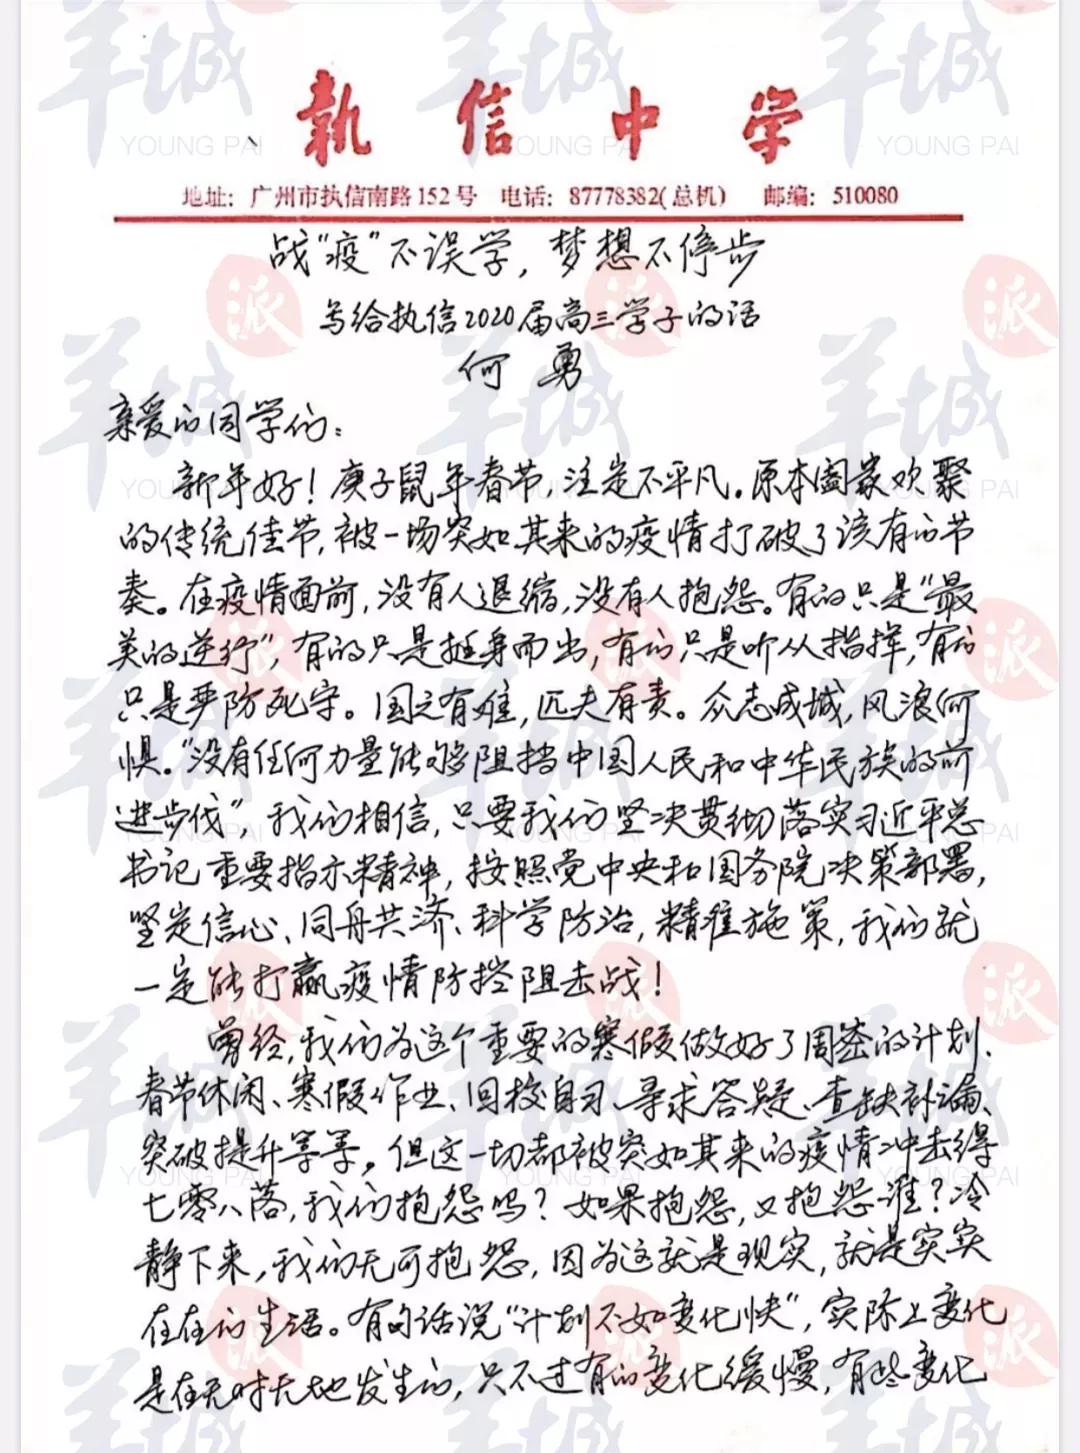 執信中学
地址：广州市执信南路152号 电话：87778382(总机) 邮编：510080
战“疫”不误学，梦想不停步
写给执信2020届高三学子的话
何勇
亲爱的同学们：
新年好！庚子鼠年春节，注定不平凡。原本阖家欢聚
的传统佳节，被一场突如其来的疫情打破了该有的节
奏。在疫情面前，没有人退缩，没有人抱怨。有的只是“最
美的逆行”，有的只是挺身而出，有的只是听从指挥，有的
只是严防死守。国之有难，匹夫有责。众志成城，风浪何
惧。“没有任何力量能够阻挡中国人民和中华民族的前
进步伐”，我们相信，只要我们坚决贯彻落实习近平总
书记重要指示精神，按照党中央和国务院决策部署，
坚定信心、同舟共济、科学防治，精准施策，我们就
一定能打赢疫情防控阻击战！
曾经，我们为这个重要的寒假做好了周密的计划、
春节休闲、寒假作业、回校自习、寻求答疑、查缺补漏、
突破提升等等。但这一切都被突如其来的疫情冲击得
七零八落，我们抱怨吗？如果抱怨，又抱怨谁？冷
静下来，我们无可抱怨，因为这就是现实，就是实实
在在的生活。有句话说“计划不如变化快”，实际上变化
是在无时无地发生的，只不过有的变化缓慢，有些变化
羊城派
YOUNG PAI